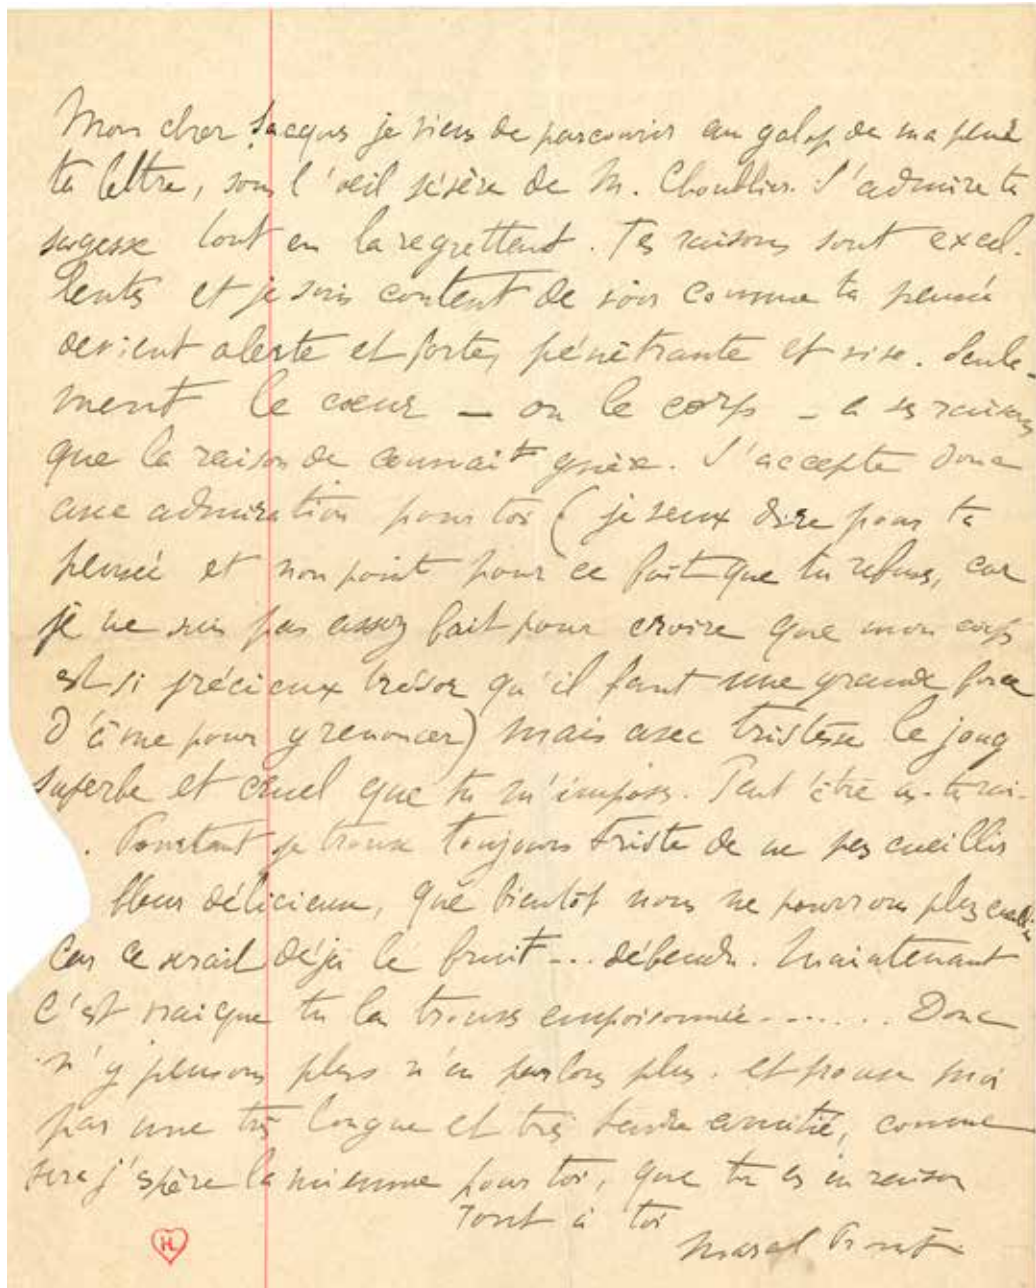 Mon cher Jacques je viens de parcourir au galop de ma peur
ta lettre, sous l'œil sévère de M. Choublier. J'admire ta
sagesse tout en la regrettant. Tes raisons sont excel-
lentes et je suis content de voir comme ta pensée
devient alerte et forte, pénétrante et vive. Seule-
ment le cœur — ou le corps — a ses raisons
que la raison ne connait guère. J'accepte donc
avec admiration pour toi (je veux dire pour ta
pensée et non point pour ce fait que tu refuses, car
je ne suis pas assez fait pour croire que mon corps
est si précieux trésor qu'il faut une grande force
d'âme pour y renoncer) mais avec tristesse le joug
superbe et cruel que tu m'imposes. Peut être as-tu rai-
. Pourtant je trouve toujours triste de ne pas cueillir
fleur délicieuse, que bientôt nous ne pourrons plus cueillir
Car ce serait déjà le fruit... défendu. Maintenant
c'est vrai que tu la trouves empoisonnée....... Donc
n'y pensons plus n'en parlons plus. et prouve moi
par une très longue et très tendre amitié, comme
sera j'espère la mienne pour toi, que tu as eu raison
Tout à toi
Marcel Proust
HL